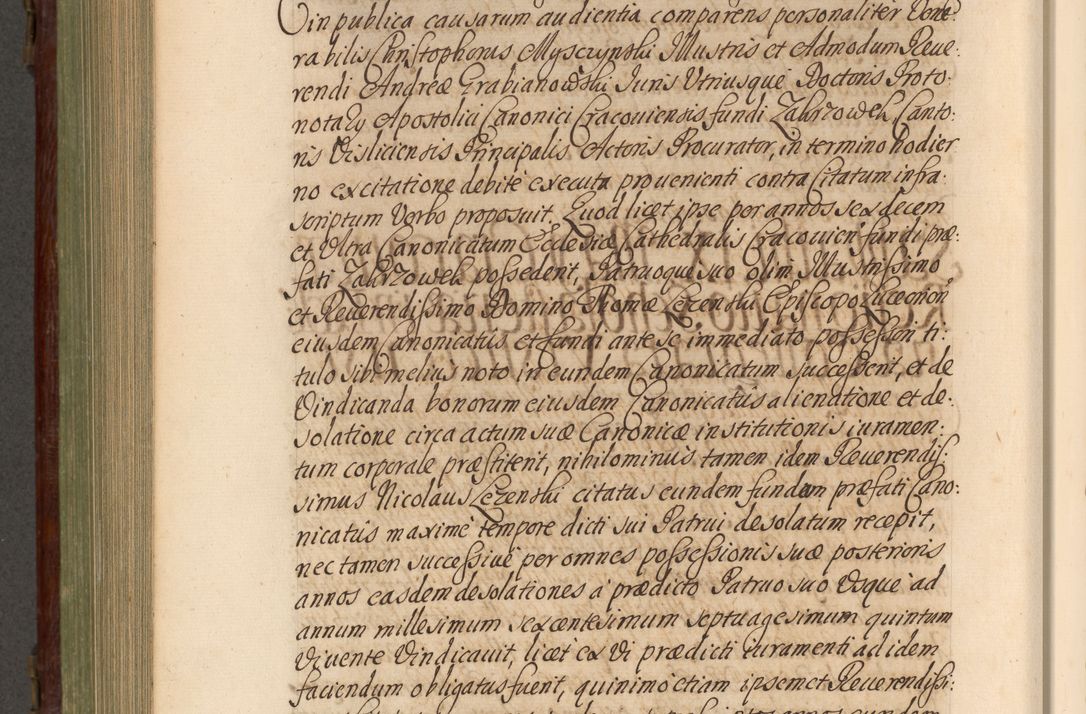 in publica causarum audientia comparens personaliter Vene:
rabilis Christophorus Myszczynski Illustris et Admodum Reue:
rendi Andreæ Grabianowski Iuris Vtriusque Doctoris Proto:
notary Apostolici Canonici Cracouiensis fundi Zakrzowek, Canto:
ris Visliciensis Principalis Actoris Procurator, in termino hodier
no ex citatione debite executa prouenienti contra Citatum infra:
scriptum Verbo proposuit. Quod licet ipse per annos sexdecem
et Vltra Canonicatum Ecclesiæ Cathedralis Cracouien fundi præ:
fati Zakrzowek possederit, Patruoque suo olim Illustrissimo
et Reuerendissimo Domino Thomæ Lezenski Episcopo Luceorien
eiusdem Canonicatus et fundi ante se immediato possessori ti:
tulo sibi melius noto in eundem Canonicatum successerit, et de
Vindicanda bonorum eiusdem Canonicatus alienatione et de:
solatione circa actum suæ Canonicæ institutionis iuramen:
tum corporale præstiterit, nihilominus tamen idem Reuerendis:
simus Nicolaus Lezenski citatus eundem fundum præfati Cano:
nicatus maxime tempore dicti sui Patrui desolatum recepit,
nec tamen successiue per omnes possessionis suæ posterioris
annos easdem desolationes a prædicto Patruo suo Vsque ad
annum millesimum sexcentesimum septuagesimum quintum
Viuente Vindicauit, licet ex Vi prædicti iuramenti ad idem
faciendum obligatus fuerit, quinimo etiam ipsemet Reuerendissi: